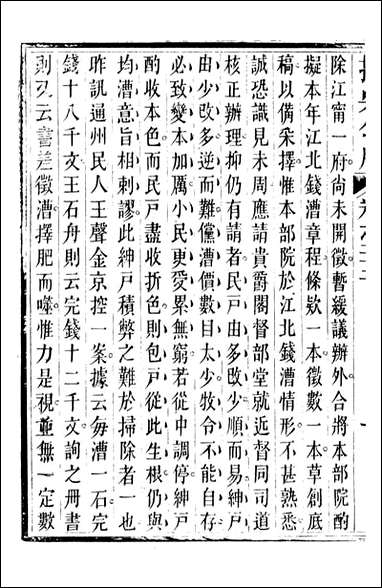 除江甯一府尙未開徵暫緩議辦外合將本部院酌
擬本年江北錢漕章程條欵一本徵數一本草創底
稿以備采擇惟本部院於江北錢漕情形不甚熟悉
誠恐識見未周應請貴爵閣督部堂就近督同司道
核正辦理抑仍有請者民戸由多改少順而易紳戸
由少改多逆而難儻漕價數目太少牧令不能自存
必致變本加厲小民更受累無窮若從中調停紳戸
酌收本色而民戸盡收折色則包戸從此生根仍與
均漕意旨相剌謬此紳戸積弊之難於掃除者一也
昨訊通州民人王聲金京控一案據云每漕一石完
錢十八千文王石舟則云完錢十二千文詢之冊書
則又云書差徵漕擇肥而噬惟力是視並無一定數